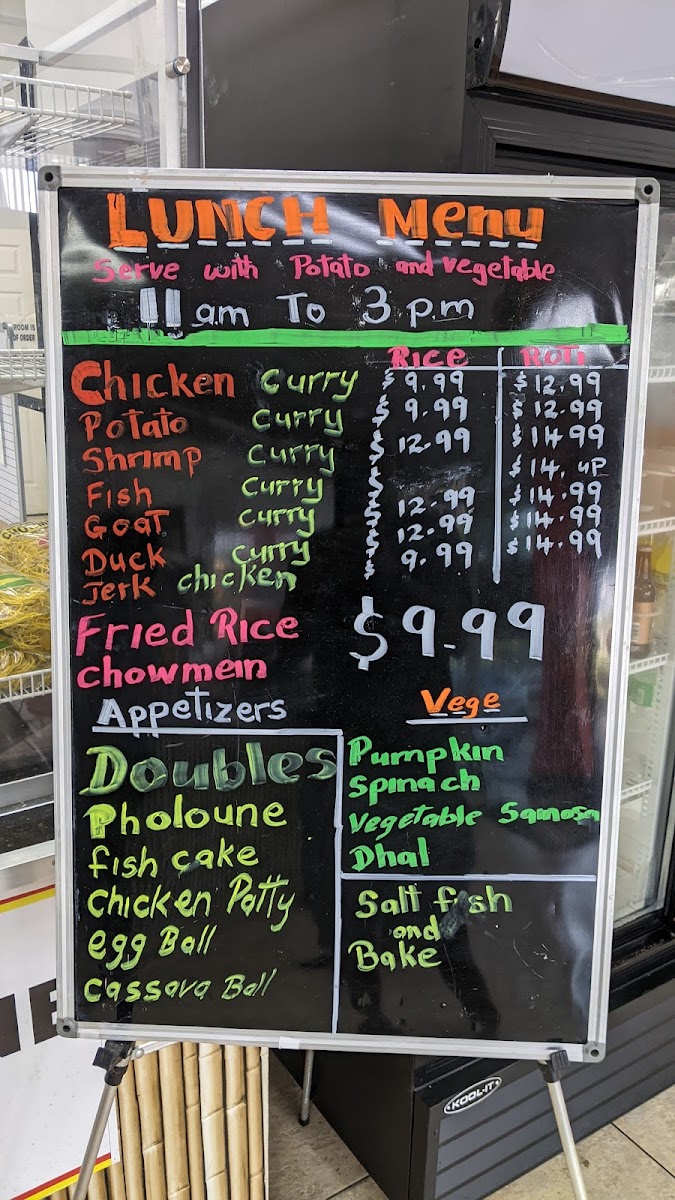 LUNCH Menu
Serve with Potato and vegetable
11 am To 3 pm
RICE ROTI
Chicken Curry $9.99 $12.99
Potato Curry $9.99 $12.99
Shrimp Curry $12.99 $14.99
Fish Curry $ $14. up
Goat Curry $12.99 $14.99
Duck Curry $12.99 $14.99
Jerk chicken $9.99 $14.99
Fried Rice $9.99
chowmein
Appetizers
Doubles
Pholoune
fish cake
Chicken Patty
egg Ball
cassava Ball
Vege
Pumpkin
Spinach
Vegetable Samosa
Dhal
Salt fish
and
Bake
ROOM IS
OF ORDER
KOOL-IT